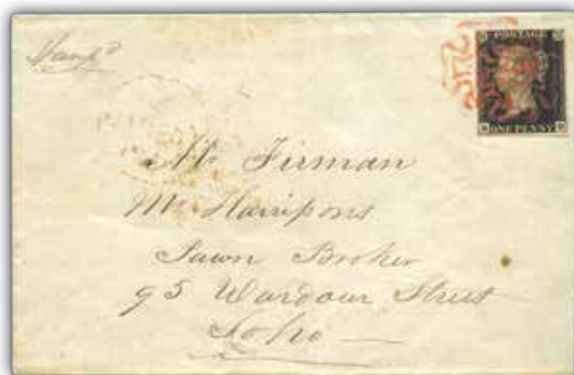 Stamp^d
POSTAGE
ONE PENNY
Mr Firman
Mr Harrisons
Pawn Broker
95 Wardour Street
Soho